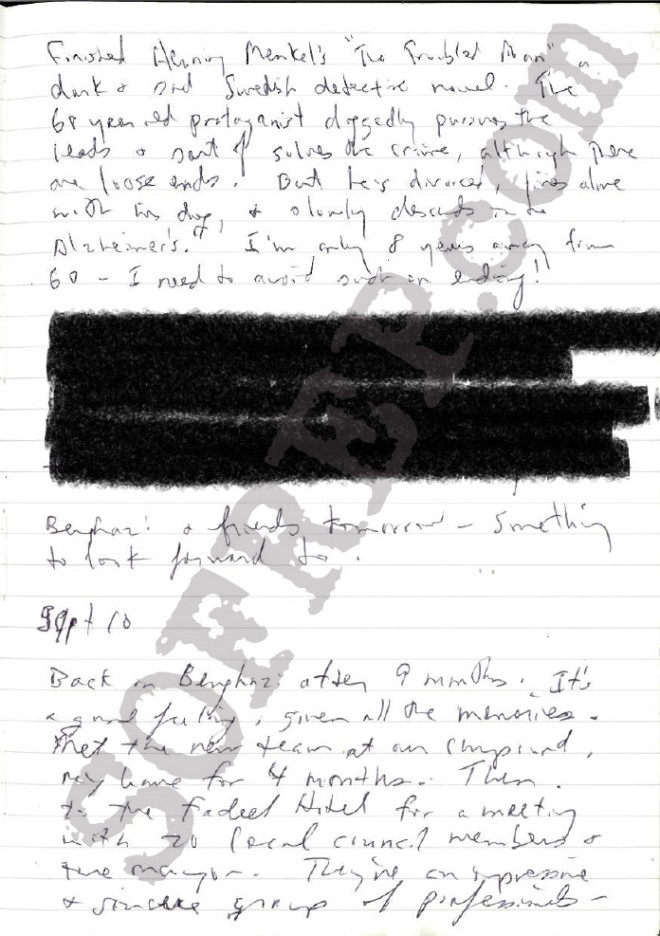 Finished Henning Menkel's "The Troubled Man" a
dark & sad Swedish detective novel. The
68 year old protaganist doggedly pursues the
leads & sort of solves the crime, although there
are loose ends. But he's divorced, lives alone
with his dog, & slowly descends into
Alzheimer's." I'm only 8 years away from
60 - I need to avoid such an ending!"
Benghazi & friends tomorrow - something
to look forward to.
Sept 10
Back in Benghazi after 9 months. It's
a grand feeling, given all the memories.
Met the new team at our compound,
my home for 4 months. Then
to the Fadeel Hotel for a meeting
with 20 local council members &
the mayor. They're an impressive
& sincere group of professionals -
SOFREP.com